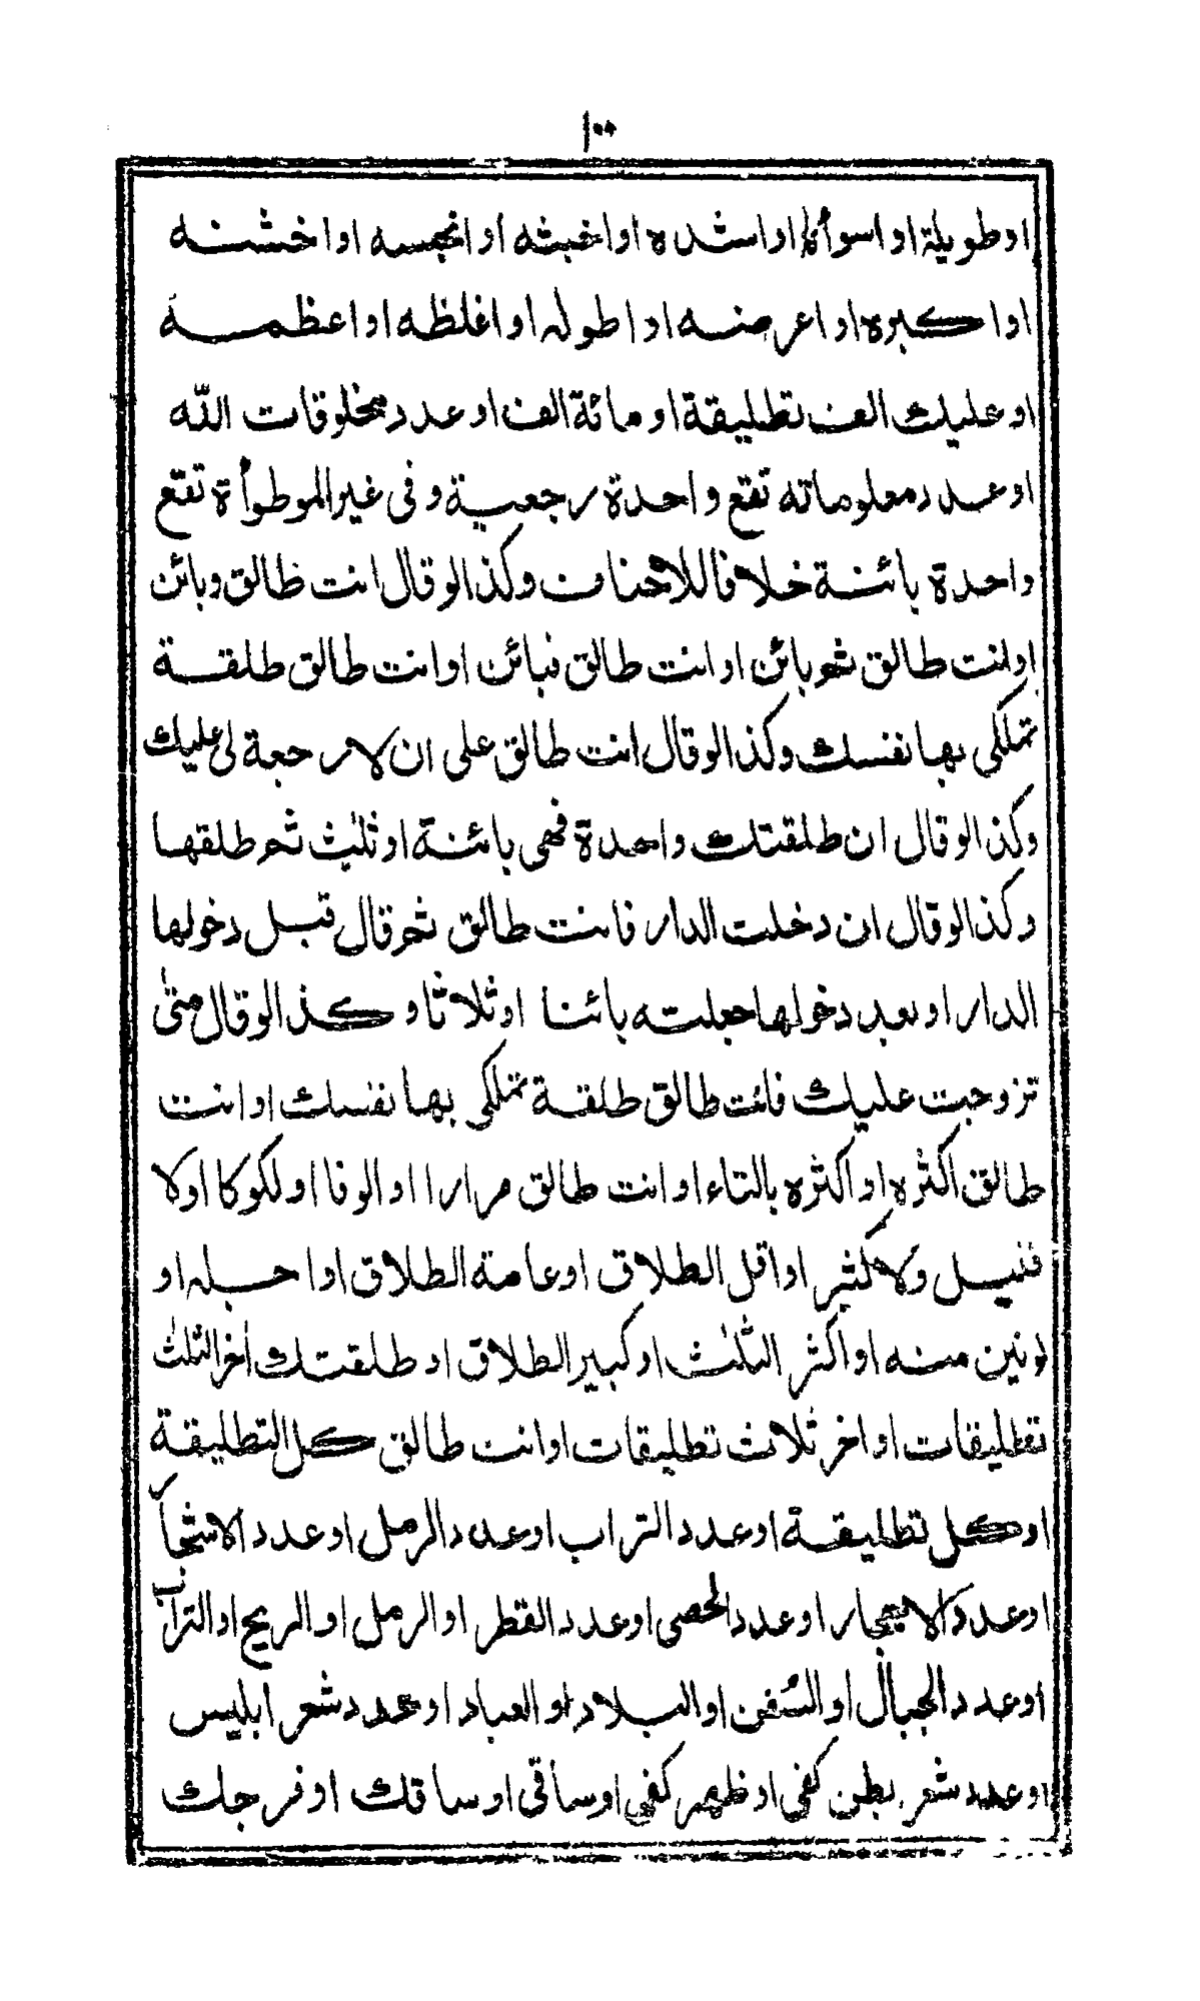 ١٠٠
او طويلة او اسوأه او اشده او اخبثه او انجسه او اخشنه
او اكبره او اعرضه او اطوله او اغلظه او اعظمه
او عليك الف تطليقة او مائة الف او عدد مخلوقات الله
او عدد معلوماته تقع واحدة رجعية وفى غير الموطوأة تقع
واحدة بائنة خلافا للاحناف وكذا لو قال انت طالق وبائن
او انت طالق ثم بائن او انت طالق فبائن او انت طالق طلقة
تملكى بها نفسك وكذا لو قال انت طالق على ان لا رجعة لى عليك
وكذا لو قال ان طلقتك واحدة فهى بائنة او ثلث ثم طلقها
وكذا لو قال ان دخلت الدار فانت طالق ثم قال قبل دخولها
الدار او بعد دخولها جعلته بائنا او ثلاثا وكذا لو قال متى
تزوجت عليك فانت طالق طلقة تملكى بها نفسك او انت
طالق اكثره او اكثره بالتاء او انت طالق مرارا او الوفا او لكوكا او لا
قنيل ولا كثير او اقل الطلاق او عامة الطلاق او اجله او
لونين منه او اكثر الثلث او كبير الطلاق او طلقتك اخر الثلث
تطليقات او اخر ثلاث تطليقات او انت طالق كل التطليقة
او كل تطليقة او عدد التراب او عدد الرمل او عدد الاشجار
او عدد الاحجار او عدد الحصى او عدد القطر او الرمل او الريح او التراب
او عدد الجبال او السفن او البلاد او العباد او عدد شعر ابليس
او عدد شعر بطن كفى او ظهر كفى او ساقى او ساقك او فرجك